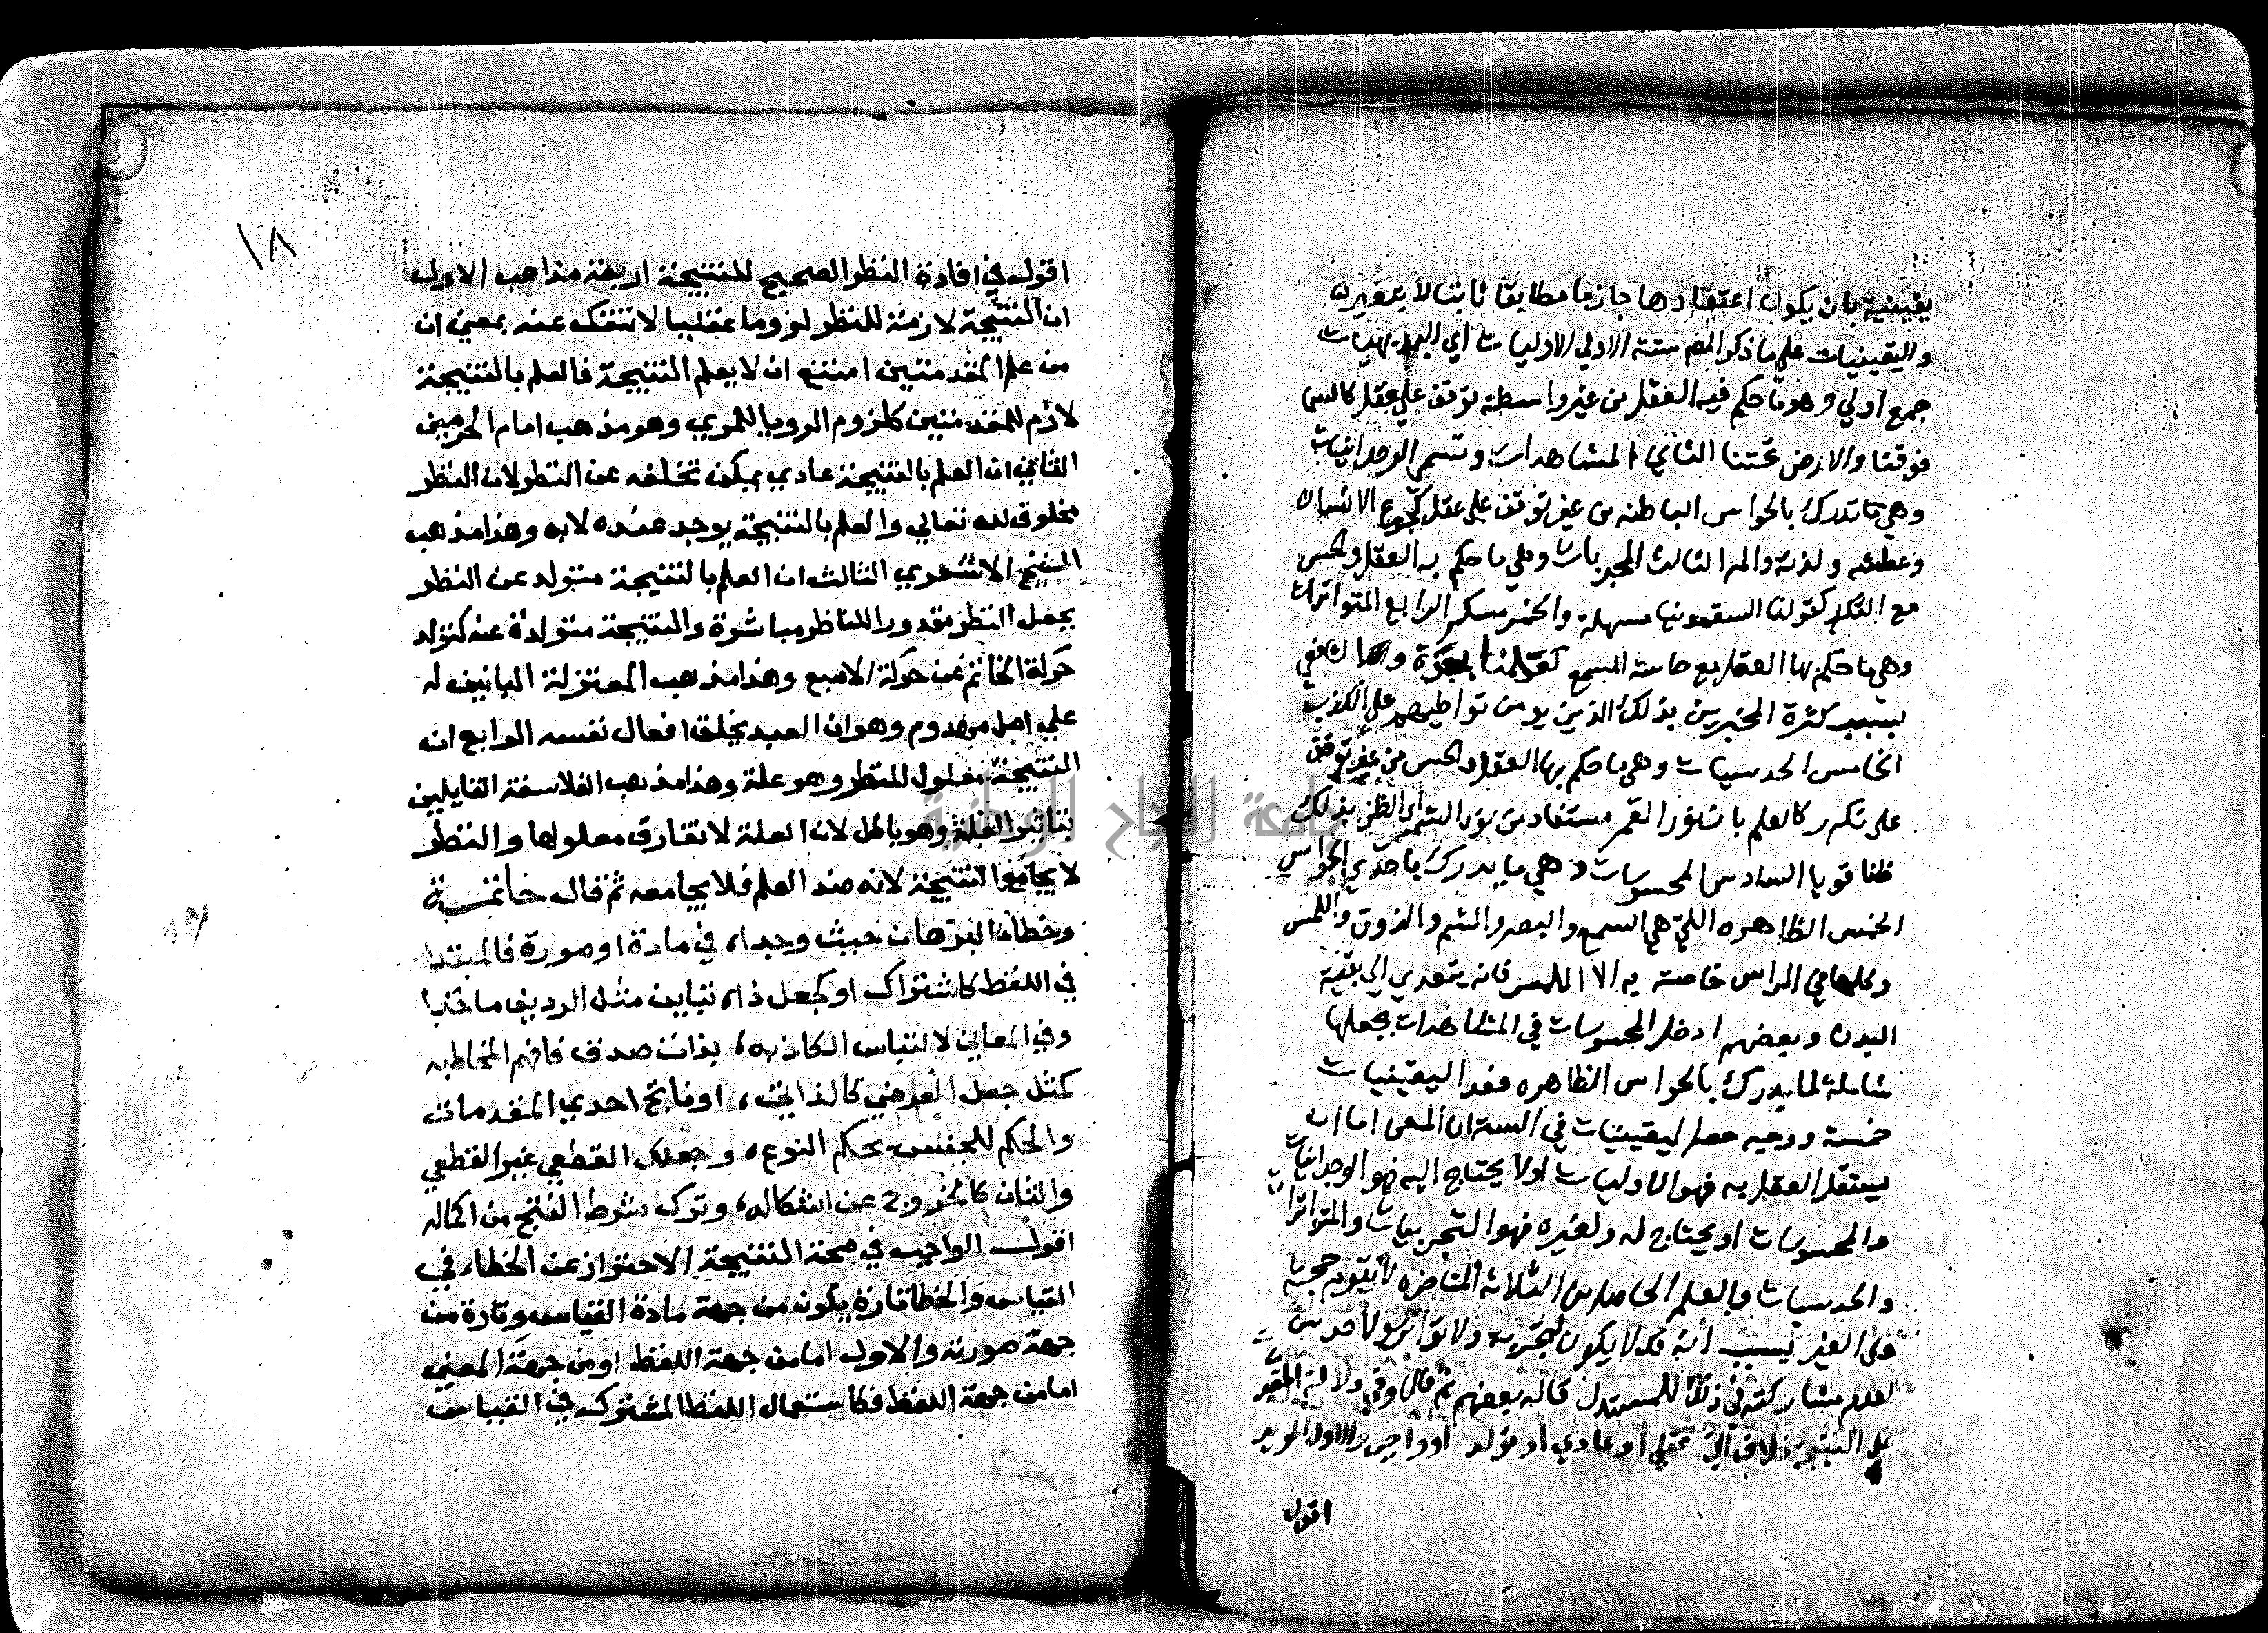 يقينية بان يكون اعتقادها جازما مطابقا ثابتا لا يتغير
واليقينيات على ما ذكر المص ستة الاولى الاوليات اي البديهيات
جمع اولي وهو ما حكم فيه العقل من غير واسطة توقف على عقل كالسما
فوقنا والارض تحتنا الثاني المشاهدات وتسمى الوجدانيات
وهي ما تدرك بالحواس الباطنه من غير توقف على عقل كجوع الانسان
وعطشه ولذته والمه الثالث المجربات وهي ما حكم به العقل والحس
مع التكرر كقولنا السقمونيا مسهلة والخمر مسكر الرابع المتواترات
وهي ما حكم بها العقل مع حاسة السمع كقولنا
بسبب كثرة المخبرين بذلك الذين يومن تواطيهم على الكذب
الخامس الحدسيات وهي ما حكم بها العقل والحس من غير توقف
على تكرر كالعلم بان نور القمر مستفاد من نور الشمس اي الظن بذلك
ظنا قويا السادس المحسوسات وهي ما يدرك باحدي الحواس
الخمس الظاهره التي هي السمع والبصر والشم والذوق واللمس
وكلها في الراس خاصة به الا اللمس فانه يتعدي الى بقية
البدن وبعضهم ادخل المحسوسات في المشاهدات بجعلها
شاملة لما يدرك بالحواس الظاهره فعد اليقينيات
خمسة ووجه حصر اليقينيات في الستة ان المعنى اما ان
يستقل العقل به فهو الاوليات اولا يحتاج اليه فهو الوجدانيات
والمحسوسات او يحتاج له ولغيره فهو التجربيات والمتواترات
والحدسيات والعلم الحاصل من الثلاثة المتاخره لا يقوم حجة
على الغير بسبب أنه قد لا يكون له تجربة ولا تواتر ولا حدس
لعدم مشاركته في ذلك للمستدل قاله بعضهم ثم قال وفي دلالة المقدمات
على النتيجة خلاف آت عقلي أو عادي أو تولد أو واجب والاول المويد
اقول
١٨
اقول في افادة النظر الصحيح للنتيجة اربعة مذاهب الاول
ان النتيجة لازمة للنظر لزوما عقليا لا تنفك عنه بمعني ان
من علم المقدمتين امتنع ان لا يعلم النتيجة فالعلم بالنتيجة
لازم للمقدمتين كلزوم الرويا للمريي وهو مذهب امام الحرمين
الثاني ان العلم بالنتيجة عادي يمكن تخلفه عن النظر لان النظر
مخلوق لله تعالي والعلم بالنتيجة يوجد عنده لا به وهذا مذهب
الشيخ الاشعري الثالث ان العلم بالنتيجة متولد عن النظر
بجعل النظر مقدورا للناظر مباشرة والنتيجة متولدة عنه كتولد
حركة الخاتم عن حركة الاصبع وهذا مذهب المعتزلة البانين له
علي اصل مهدوم وهو ان العبد يخلق افعال نفسه الرابع انه
النتيجة معلول للنظر وهو علة وهذا مذهب الفلاسفة القايلين
بتاثير العلة وهو باطل لان العلة لا تفارق معلولها والنظر
لا يجامع النتيجة لانه ضد العلم فلا يجامعه ثم قال خاتمة
وخطأ البرهان حيث وجدا، في مادة او صورة فالمبتدا
في اللفظ كاشتراك او كجعل ذا، تباين مثل الرديف ماخذا
وفي المعاني لالتباس الكاذبه، بذات صدق فافهم المخاطبه
كمثل جعل العرضي كالذاتي، او ناتج احدي المقدمات
والحكم للجنس بحكم النوع، وجعلك القطعي غير القطعي
والثان كالخروج عن اشكاله، وترك شرط النتج من اكماله
اقول الواجب في صحة النتيجة الاحتراز عن الخطاء في
القياس والخطا تارة يكون من جهة مادة القياس وتارة من
جهة صورته والاول اما من جهة اللفظ او من جهة المعني
اما من جهة اللفظ فكاستعمال اللفظ المشترك في القياس